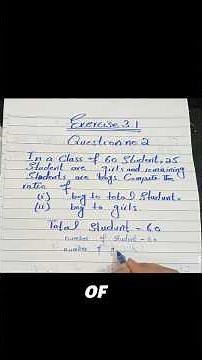 Exercise 3.1
Question no 2
In a Class of 60 Student. 25
Student are girls and remaining
Students are boys Compute the
ratio of
(i) boy to total Student.
(ii) boy to girls.
Total Student = 60
number of Student = 60
number of
OF